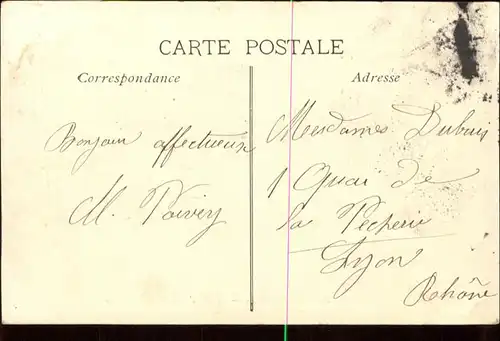 CARTE POSTALE
Correspondance
Adresse
Bonjour affectueux
M. Poivey
Mesdames Dubuis
1 Quai de
la Pècherie
Lyon
Rhône